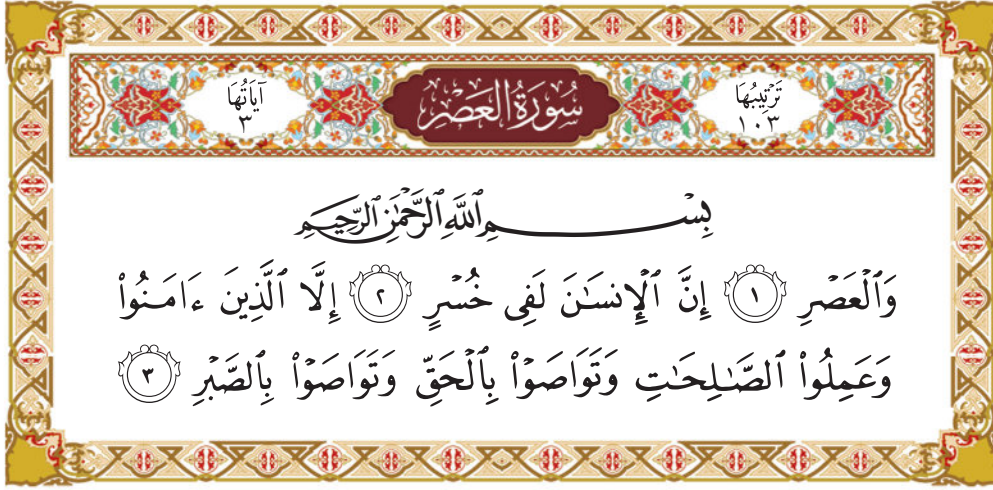 تَرْتِيبُهَا ١٠٣
سُورَةُ العَصْرِ
آيَاتُهَا ٣
بِسْمِ ٱللَّهِ ٱلرَّحْمَٰنِ ٱلرَّحِيمِ
وَٱلْعَصْرِ ١ إِنَّ ٱلْإِنسَٰنَ لَفِى خُسْرٍ ٢ إِلَّا ٱلَّذِينَ ءَامَنُوا۟
وَعَمِلُوا۟ ٱلصَّٰلِحَٰتِ وَتَوَاصَوْا۟ بِٱلْحَقِّ وَتَوَاصَوْا۟ بِٱلصَّبْرِ ٣